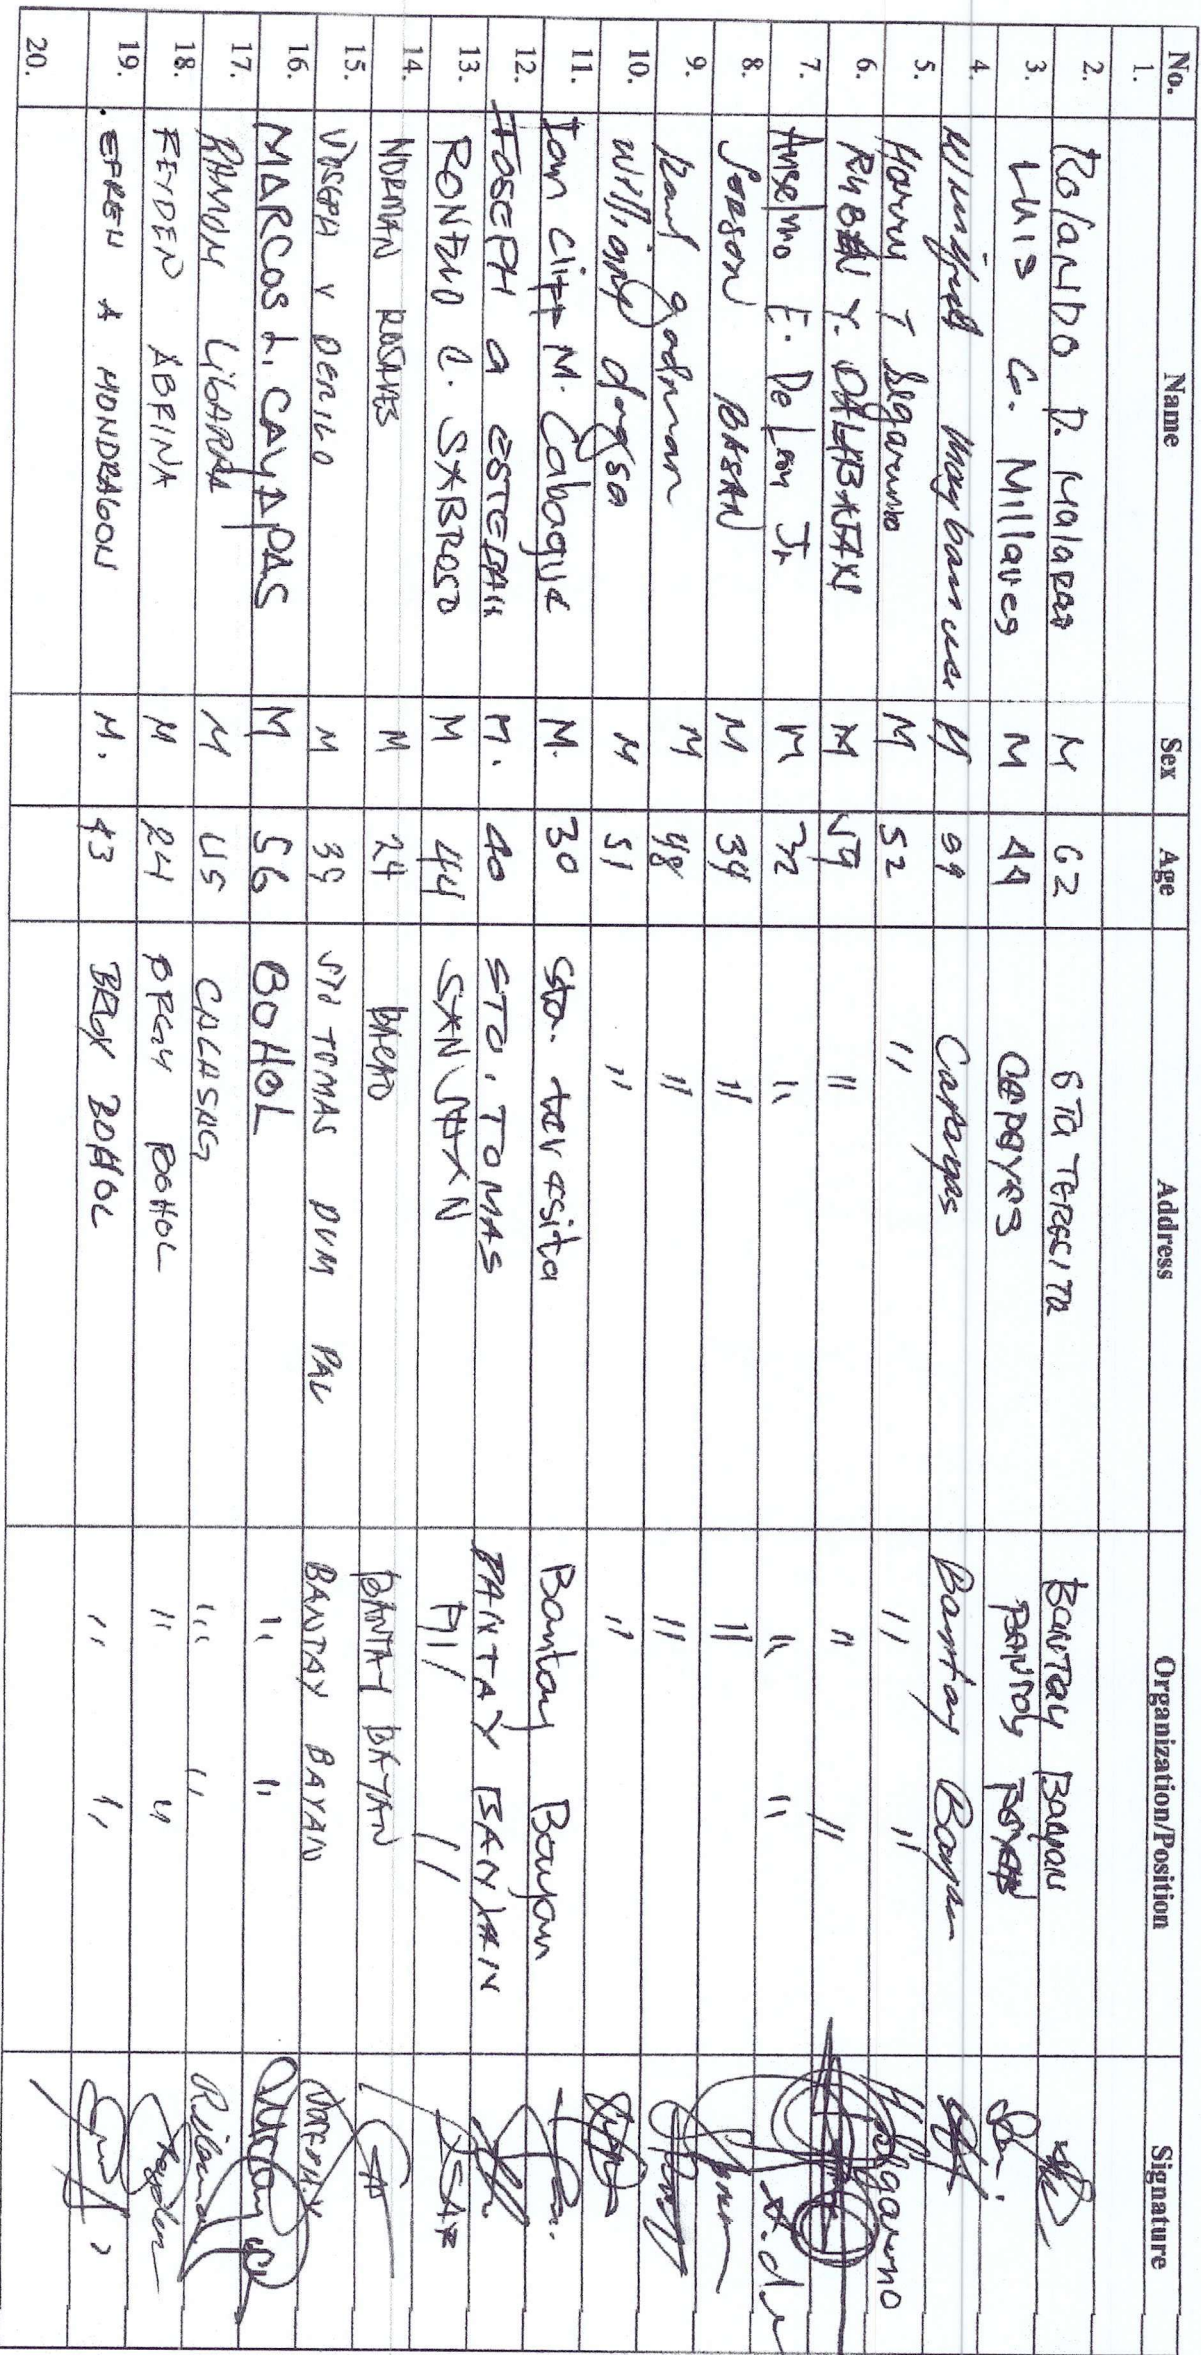 No. Name Sex Age Address Organization/Position Signature
1.
2. Rolando D. Malarao M 62 STA TERESITA Bantay Bayan
3. LUIS G. Millaves M 44 CAPAYAS BANTAY BAYAN
4. Winifred M 49 Capayas Bantay Bayan
5. Harry T Segarino M 52 " " " H Segarino
6. RUBEN Y. M 59 " " "
7. Anselmo E. De Leon Jr M 72 " " " A. de
8. Jerson BASAN M 34 " "
9. Raul godman M 48 " "
10. William dongso M 51 " "
11. Ian Cliff M. Cabague M. 30 Sta. teresita Bantay Bayan
12. JOSEPH a ESTEBAN M. 40 STO. TOMAS BANTAY BAYAN
13. RONELO C. SABROSO M 44 SAN JUAN " "
14. NORMAN ROSALES M 24 BACAO BANTAY BAYAN
15. JOSEPH V DERILO M 39 STO TOMAS DUM PAL BANTAY BAYAN JOSEPH.V
16. MARCOS L. CAYAPAS M 56 BOHOL " "
17. RAMON LIGARRA M 45 CALASAG " "
18. REYDEN ABRINA M 24 BRGY BOHOL " " Reyden
19. EFREN A MONDRAGON M. 43 BRGY BOHOL " "
20.